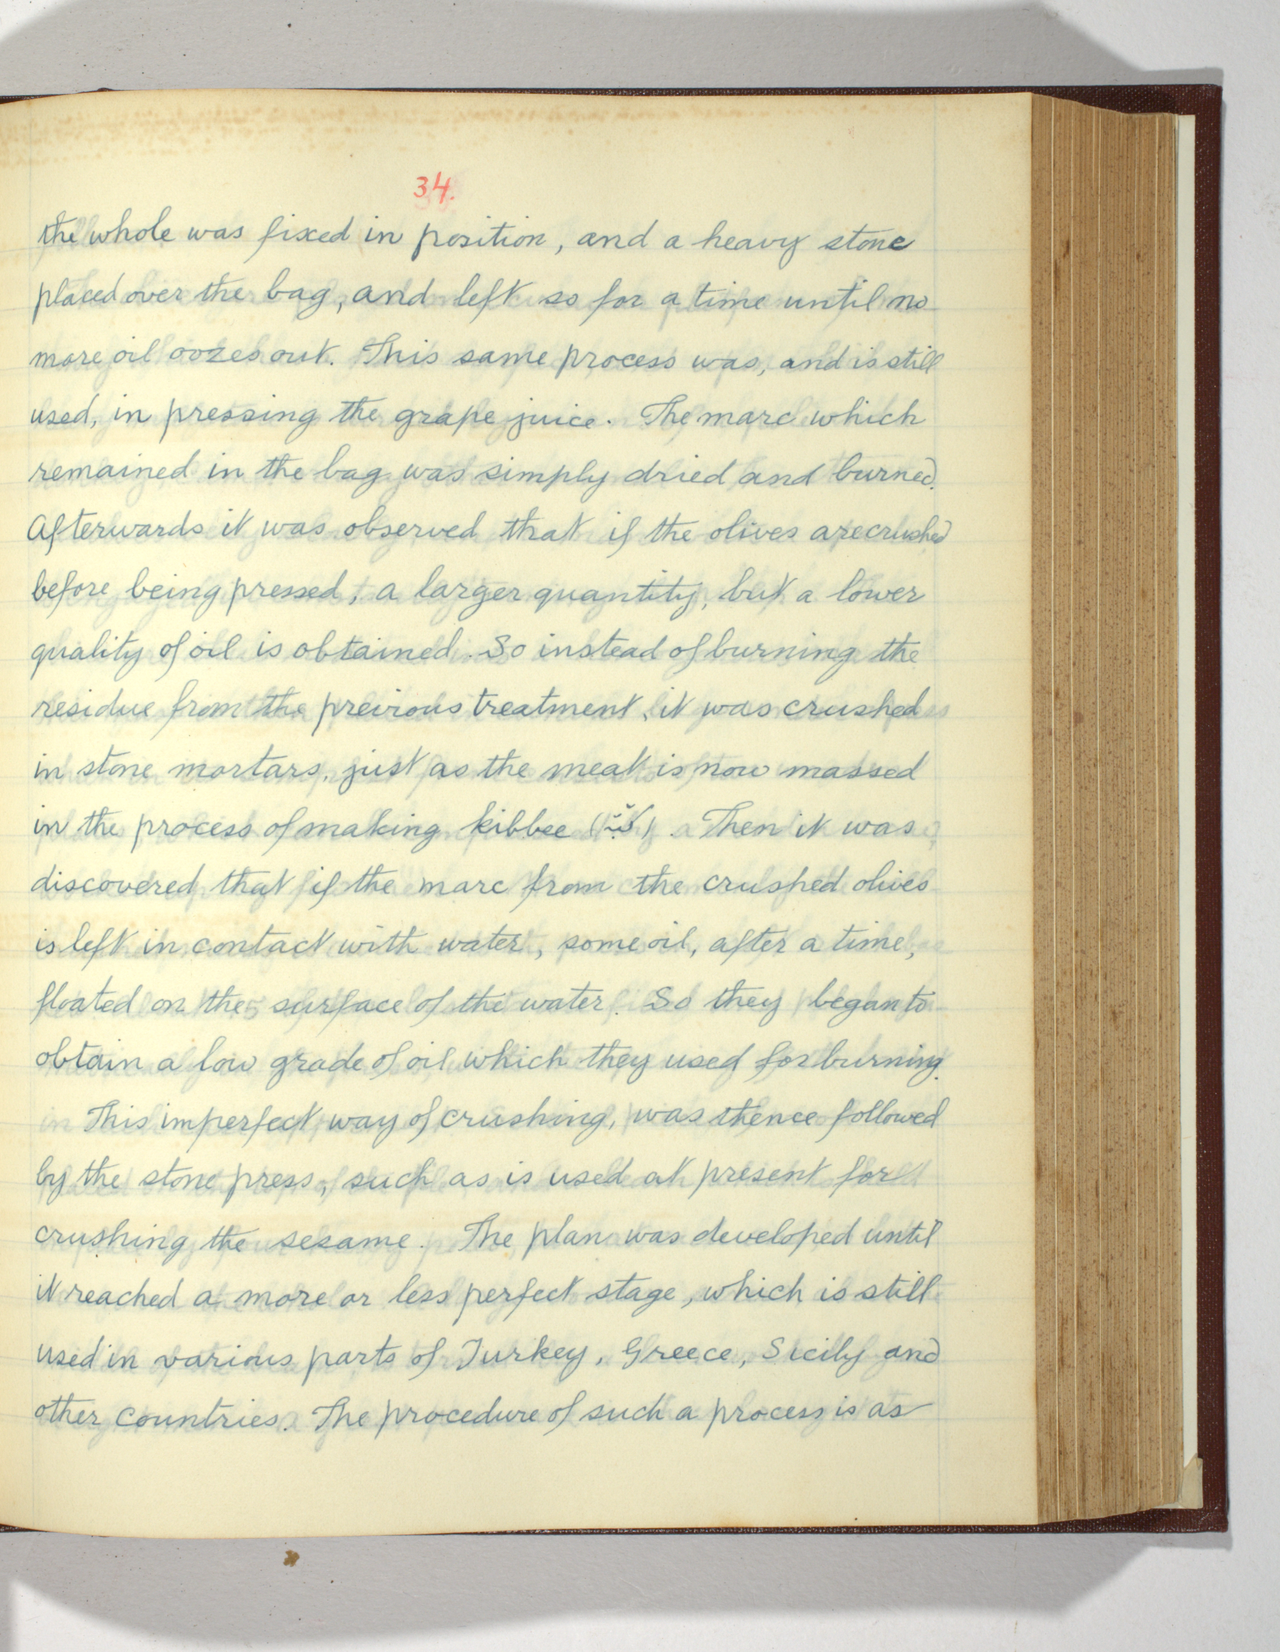 34.
the whole was fixed in position, and a heavy stone
placed over the bag, and left so for a time until no
more oil oozes out. This same process was, and is still
used, in pressing the grape juice. The marc which
remained in the bag was simply dried and burned.
Afterwards it was observed that if the olives are crushed
before being pressed, a larger quantity, but a lower
quality of oil is obtained. So instead of burning the
residue from the previous treatment, it was crushed
in stone mortars, just as the meat is now massed
in the process of making kibbee (كبة). Then it was
discovered that if the marc from the crushed olives
is left in contact with water, some oil, after a time,
floated on the surface of the water. So they began to
obtain a low grade of oil which they used for burning.
This imperfect way of crushing, was thence followed
by the stone press, such as is used at present for
crushing the sesame. The plan was developed until
it reached a more or less perfect stage, which is still
used in various parts of Turkey, Greece, Sicily and
other countries. The procedure of such a process is as